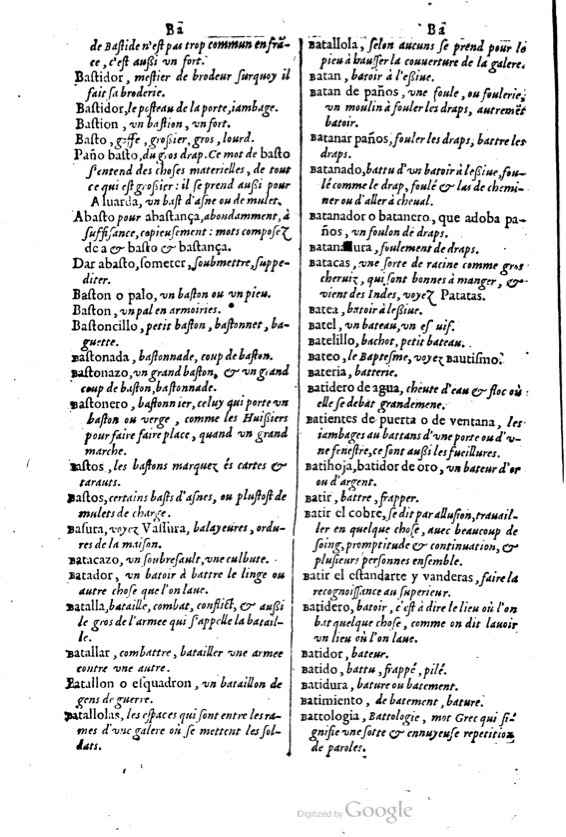 Ba
de Bastide n'est pas trop commun en frã-
ce, c'est außi vn fort.
Bastidor, mestier de brodeur surquoy il
fait sa broderie.
Bastidor, le posteau de la porte, iambage.
Bastion, vn bastion, vn fort.
Basto, gaffe, großier, gros, lourd.
Paño basto, du gros drap. Ce mot de basto
s'entend des choses materielles, de tout
ce qui est großier : il se prend außi pour
Aluarda, vn bast d'asne ou de mulet.
Abasto pour abastança, abondamment, à
suffisance, copieusement : mots composez
de a & basto & bastança.
Dar abasto, someter, soubmettre, suppe-
diter.
Baston o palo, vn baston ou vn pieu.
Baston, vn pal en armoiries.
Bastoncillo, petit baston, bastonnet, ba-
guette.
Bastonada, bastonnade, coup de baston.
Bastonazo, vn grand baston, & vn grand
coup de baston, bastonnade.
Bastonero, bastonnier, celuy qui porte vn
baston ou verge, comme les Huißiers
pour faire faire place, quand vn grand
marche.
Bastos, les bastons marquez és cartes &
tarauts.
Bastos, certains basts d'asnes, ou plustost de
mulets de charge.
Basura, voyez Vassura, balayeures, ordu-
res de la maison.
Batacazo, vn soubresault, vne culbute.
Batador, vn batoir à battre le linge ou
autre chose que l'on laue.
Batalla, bataille, combat, conflict, & außi
le gros de l'armee qui s'appelle la batail-
le.
Batallar, combattre, batailler vne armee
contre vne autre.
Batallon o esquadron, vn bataillon de
gens de guerre.
Batallolas, les espaces qui sont entre les ra-
mes d'vne galere où se mettent les sol-
dats.
Ba
Batallola, selon aucuns se prend pour le
pieu à hausser la couuerture de la galere.
Batan, batoir à leßiue.
Batan de paños, vne foule, ou foulerie,
vn moulin à fouler les draps, autremẽt
batoir.
Batanar paños, fouler les draps, battre les
draps.
Batanado, battu d'vn batoir à leßiue, fou-
lé comme le drap, foulé & las de chemi-
ner ou d'aller à cheual.
Batanador o batanero, que adoba pa-
ños, vn foulon de draps.
foulement de draps.
Batatas, vne sorte de racine comme gros
cheruiz, qui sont bonnes à manger, &
vient des Indes, voyez Patatas.
Batea, batoir à leßiue.
Batel, vn bateau, vn esquif.
Batelillo, bachot, petit bateau.
Bateo, le Baptesme, voyez Bautismo.
Bateria, batterie.
Batidero de agua, cheute d'eau & floc où
elle se debat grandemene.
Batientes de puerta o de ventana, les
iambages au battans d'vne porte ou d'v-
ne fenestre, ce sont außi les fueillures.
Batihoja, batidor de oro, vn bateur d'or
ou d'argent.
Batir, battre, frapper.
Batir el cobre, se dit par allusion, trauail-
ler en quelque chose, auec beaucoup de
soing, promptitude & continuation, &
plusieurs personnes ensemble.
Batir el estandarte y vanderas, faire la
recognoissance au superieur.
Batidero, batoir, c'est à dire le lieu où l'on
bat quelque chose, comme on dit lauoir
vn lieu où l'on laue.
Batidor, bateur.
Batido, battu, frappé, pilé.
Batidura, bature ou batement.
Batimiento, de batement, bature.
Battologia, Battologie, mot Grec qui si-
gnifie vne sotte & ennuyeuse repetition
de paroles.
Digitized by Google